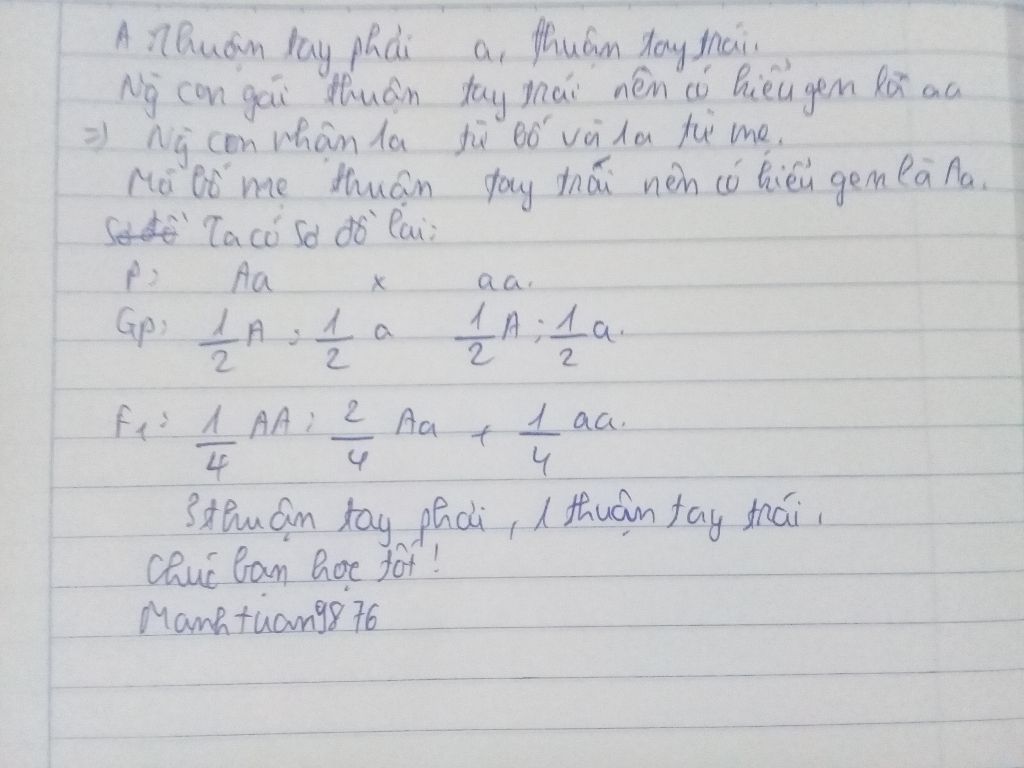 A, thuận tay phải a, thuận tay trái.
Ng con gái thuận tay trái nên có kiểu gen là aa
=> Ng con nhận 1a từ bố và 1a từ mẹ.
Mà bố mẹ thuận tay trái nên có kiểu gen là Aa.
Sơ đồ Ta có sơ đồ lai:
P: Aa x aa.
Gp: 1/2 A : 1/2 a 1/2 A : 1/2 a.
F1: 1/4 AA : 2/4 Aa + 1/4 aa.
3 thuận tay phải, 1 thuận tay trái.
Chúc bạn học tốt!
Manhtuan9876